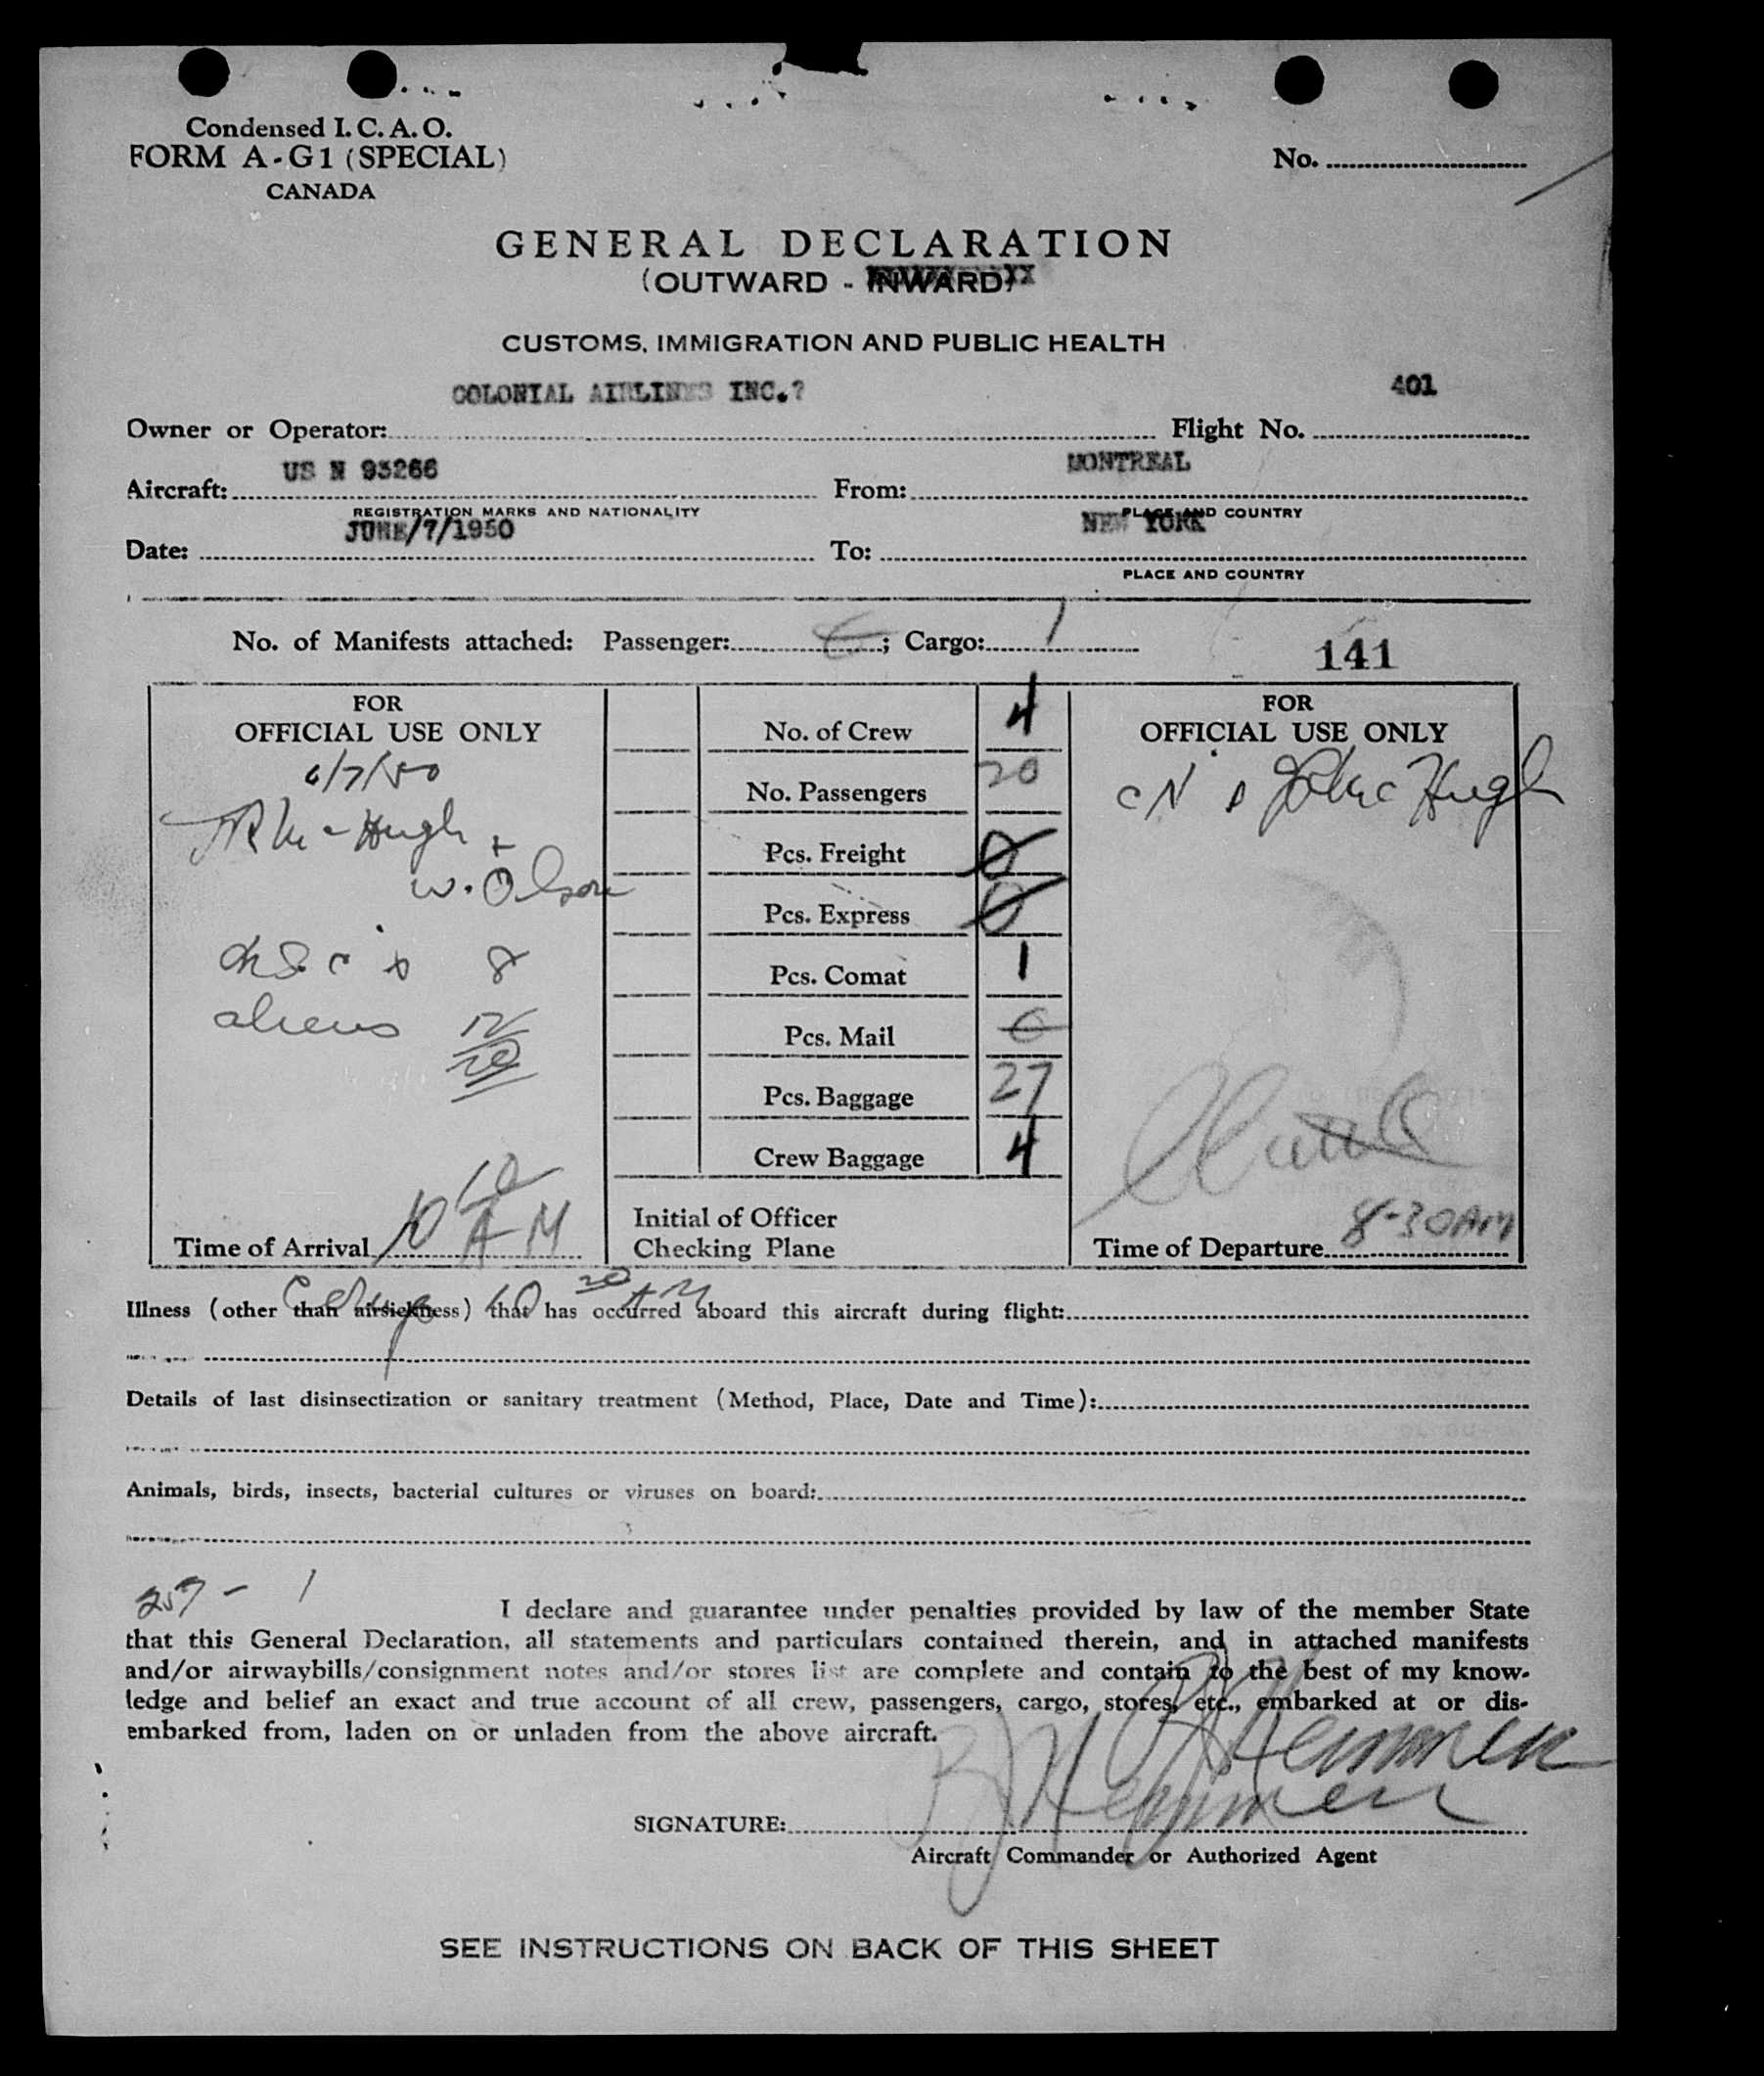 Condensed I. C. A. O.
FORM A-G1 (SPECIAL)
CANADA
No.
GENERAL DECLARATION
(OUTWARD - INWARD)
CUSTOMS, IMMIGRATION AND PUBLIC HEALTH
COLONIAL AIRLINES INC.? 401
Owner or Operator: Flight No.
US N 93266 MONTREAL
Aircraft: From:
REGISTRATION MARKS AND NATIONALITY PLACE AND COUNTRY
JUNE/7/1950 NEW YORK
Date: To:
PLACE AND COUNTRY
No. of Manifests attached: Passenger: ; Cargo: 1
141
FOR
OFFICIAL USE ONLY
6/7/50
McHugh +
W. Olson
8
aliens 12
20
10 10 AM
Time of Arrival
No. of Crew 4
No. Passengers 20
Pcs. Freight 0
Pcs. Express 0
Pcs. Comat 1
Pcs. Mail 0
Pcs. Baggage 27
Crew Baggage 4
Initial of Officer
Checking Plane
FOR
OFFICIAL USE ONLY
McHugh
8-30AM
Time of Departure
10 20 AM
Illness (other than airsickness) that has occurred aboard this aircraft during flight:
Details of last disinsectization or sanitary treatment (Method, Place, Date and Time):
Animals, birds, insects, bacterial cultures or viruses on board:
257 - 1
I declare and guarantee under penalties provided by law of the member State
that this General Declaration, all statements and particulars contained therein, and in attached manifests
and/or airwaybills/consignment notes and/or stores list are complete and contain to the best of my know-
ledge and belief an exact and true account of all crew, passengers, cargo, stores, etc., embarked at or dis-
embarked from, laden on or unladen from the above aircraft.
SIGNATURE:
Aircraft Commander or Authorized Agent
SEE INSTRUCTIONS ON BACK OF THIS SHEET